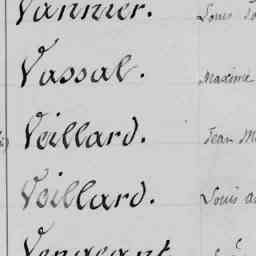 Vannier. Louis
Vassal. Maxime
Veillard. Jean
Veillard. Louis
Vengeant